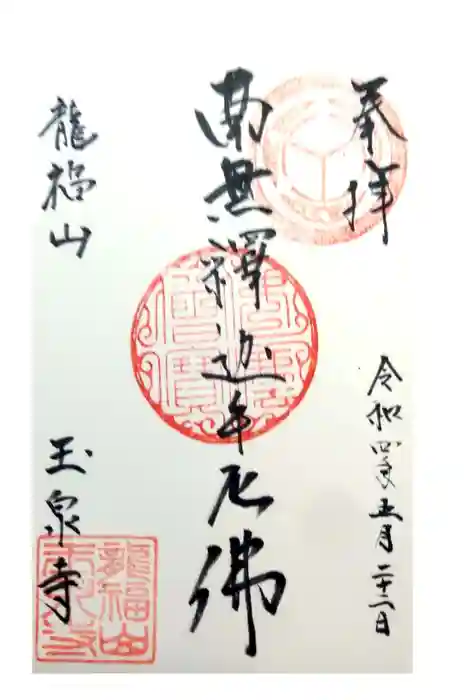 奉拝
令和四年五月二十二日
南無釋迦牟尼佛
龍福山
玉泉寺
龍福山